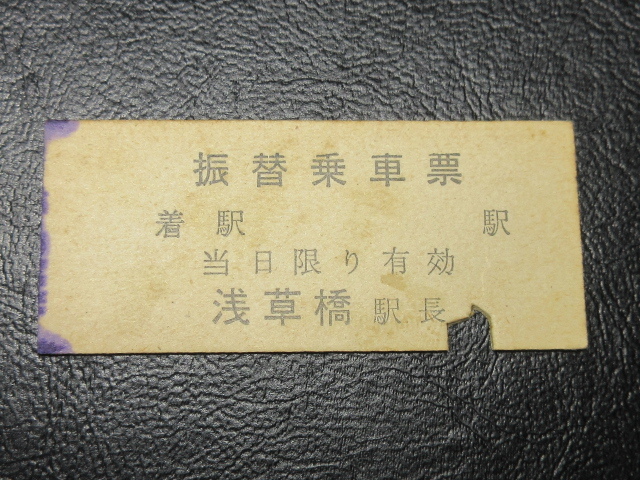 振替乗車票
着駅 駅
当日限り有効
浅草橋駅長